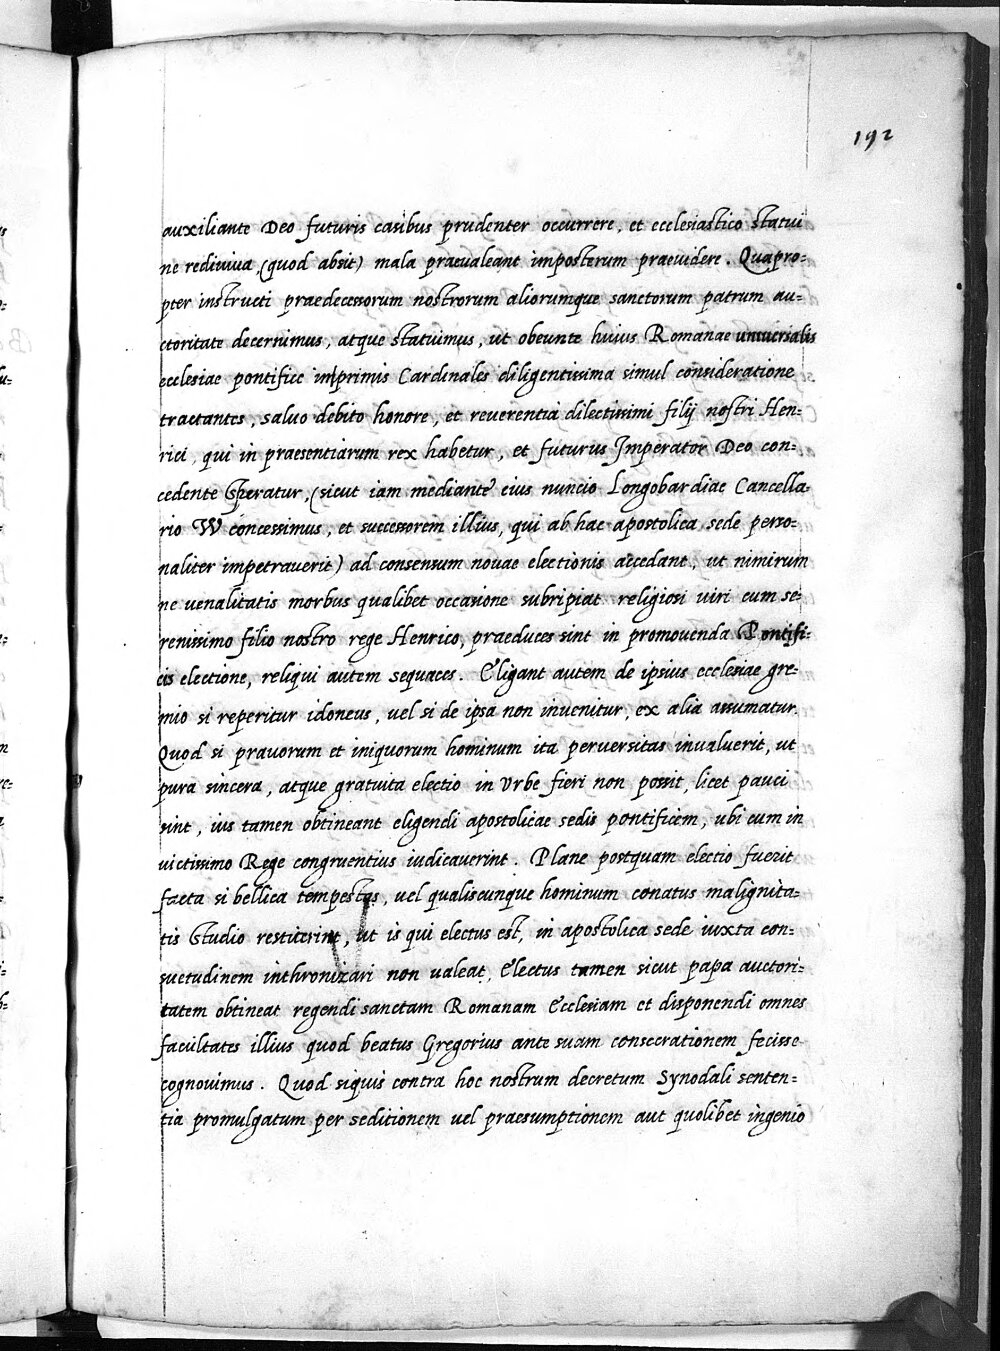 192
auxiliante Deo futuris casibus prudenter occurrere, et ecclesiastico statui
ne rediviva (quod absit) mala praevaleant imposterum praevidere. Quapro=
pter instructi praedecessorum nostrorum aliorumque sanctorum patrum au=
ctoritate decernimus, atque statuimus, ut obeunte huius Romanae universalis
ecclesiae pontifice imprimis Cardinales diligentissima simul consideratione
tractantes, salvo debito honore, et reverentia dilectissimi filij nostri Hen=
rici, qui in praesentiarum rex habetur, et futurus Imperator Deo con=
cedente speratur, (sicut iam mediante eius nuncio Longobardiae Cancella
rio W concessimus, et successorem illius, qui ab hac apostolica sede perso=
naliter impetraverit) ad consensum novae electionis accedant, ut nimirum
ne venalitatis morbus qualibet occasione subripiat religiosi viri cum se=
renissimo filio nostro rege Henrico, praeduces sint in promovenda Pontifi=
cis electione, reliqui autem sequaces. Eligant autem de ipsius ecclesiae gre=
mio si reperitur idoneus, vel si de ipsa non invenitur, ex alia assumatur.
Quod si pravorum et iniquorum hominum ita perversitas invaluerit, ut
pura sincera, atque gratuita electio in Urbe fieri non possit licet pauci
sint, ius tamen obtineant eligendi apostolicae sedis pontificem, ubi cum in
victissimo Rege congruentius iudicaverint. Plane postquam electio fuerit
facta si bellica tempestas, vel qualiscunque hominum conatus malignita=
tis studio restiterint, ut is qui electus est, in apostolica sede iuxta con=
suetudinem inthronizari non valeat, Electus tamen sicut papa auctori=
tatem obtineat regendi sanctam Romanam Ecclesiam et disponendi omnes
facultates illius quod beatus Gregorius ante suam consecrationem fecisse
cognovimus. Quod siquis contra hoc nostrum decretum Synodali senten=
tia promulgatum per seditionem vel praesumptionem aut quolibet ingenio